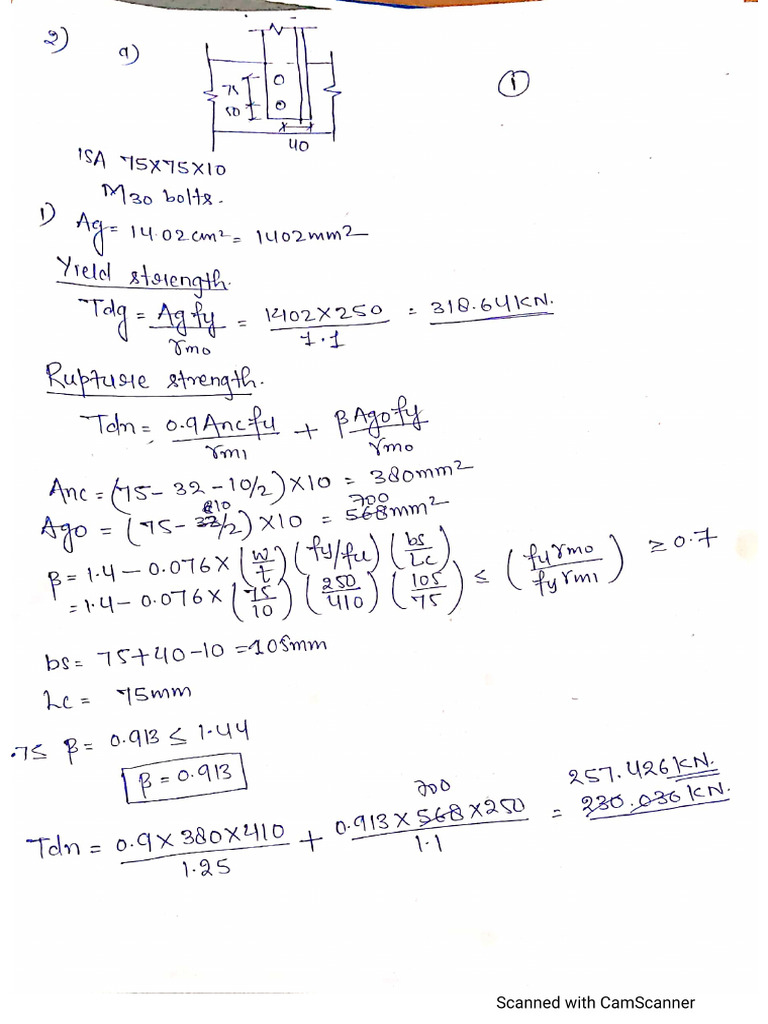 2) a)
①
75
50
40
ISA 75X75X10
M30 bolts.
1) Ag = 14.02cm² = 1402mm2
Yield strength.
Tdg = Agfy/γmo = 1402X250/1.1 = 318.64KN.
Rupture strength.
Tdn = 0.9Ancfu/γm1 + βAgofy/γmo
Anc = (75-32-10/2)X10 = 380mm2
Ago = (75-10/2)X10 = 700mm2
β = 1.4-0.076X(w/t)(fy/fu)(bs/Lc)
= 1.4-0.076X(75/10)(250/410)(105/75) ≤ (fuγmo/fyγm1) ≥0.7
bs = 75+40-10 = 105mm
Lc = 75mm
.7≤ β = 0.913 ≤ 1.44
β = 0.913
Tdn = 0.9X380X410/1.25 + 0.913X700X250/1.1 = 257.426KN.
Scanned with CamScanner